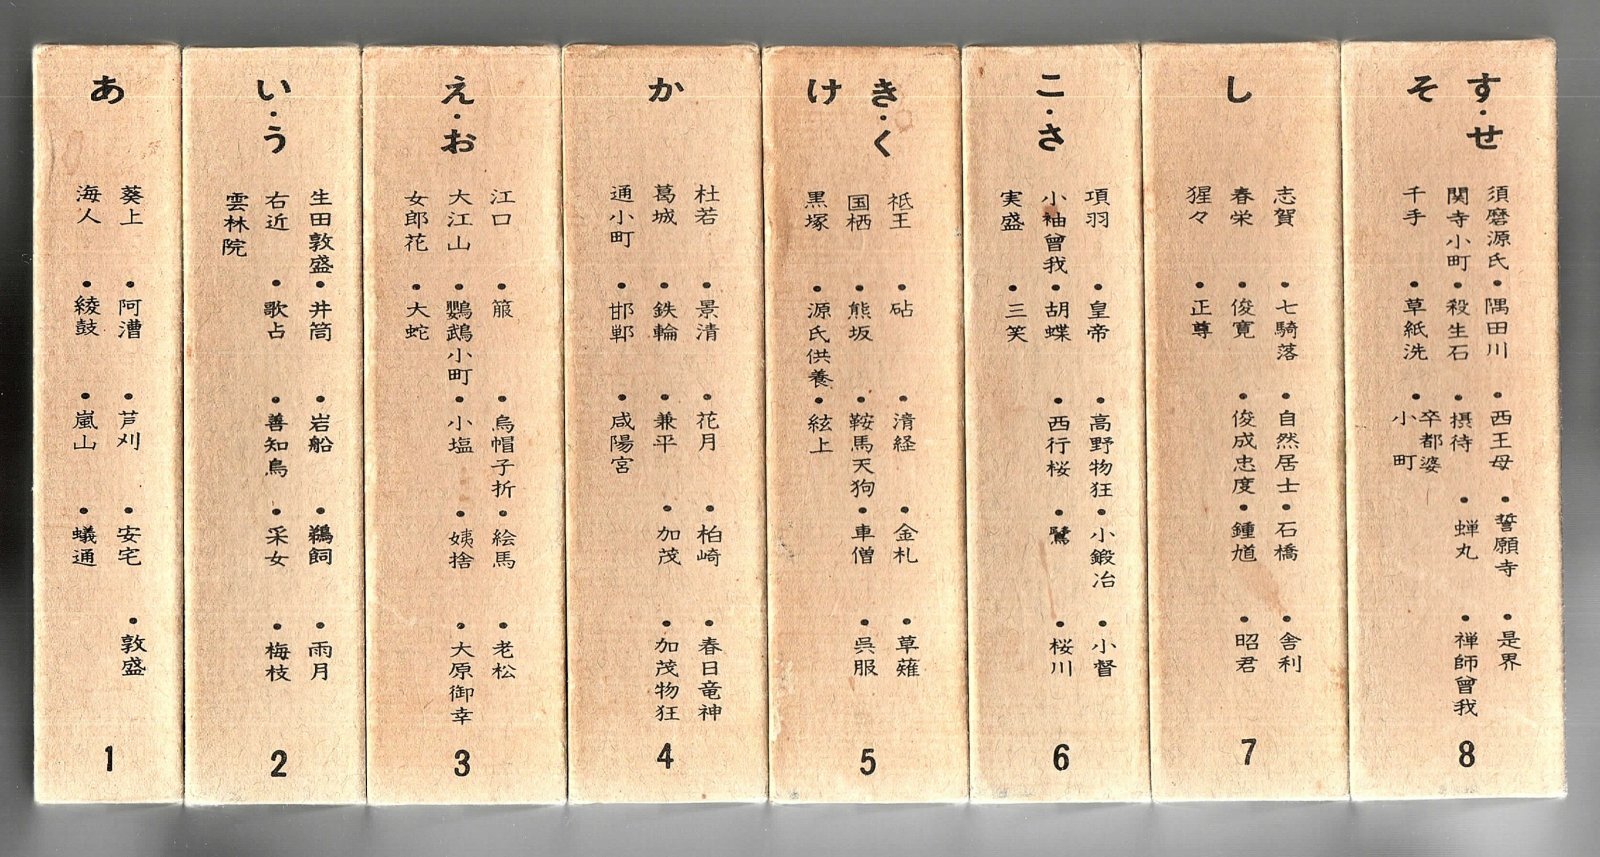 あ
葵上・阿漕・芦刈・安宅・敦盛
海人・綾鼓・嵐山・蟻通
1
い・う
生田敦盛・井筒・岩船・鵜飼・雨月
右近・歌占・善知鳥・采女・梅枝
雲林院
2
え・お
江口・箙・烏帽子折・絵馬・老松
大江山・鸚鵡小町・小塩・姨捨・大原御幸
女郎花・大蛇
3
か
杜若・景清・花月・柏崎・春日竜神
葛城・鉄輪・兼平・加茂・加茂物狂
通小町・邯鄲・咸陽宮
4
き・く
け
祗王・砧・清経・金札・草薙
国栖・熊坂・鞍馬天狗・車僧・呉服
黒塚・源氏供養・絃上
5
こ・さ
項羽・皇帝・高野物狂・小鍛冶・小督
小袖曾我・胡蝶・西行桜・鷺・桜川
実盛・三笑
6
し
志賀・七騎落・自然居士・石橋・舎利
春栄・俊寛・俊成忠度・鍾馗・昭君
猩々・正尊
7
す・せ
そ
須磨源氏・隅田川・西王母・誓願寺・是界
関寺小町・殺生石・摂待・蝉丸・禅師曾我
千手・草紙洗・卒都婆小町
8